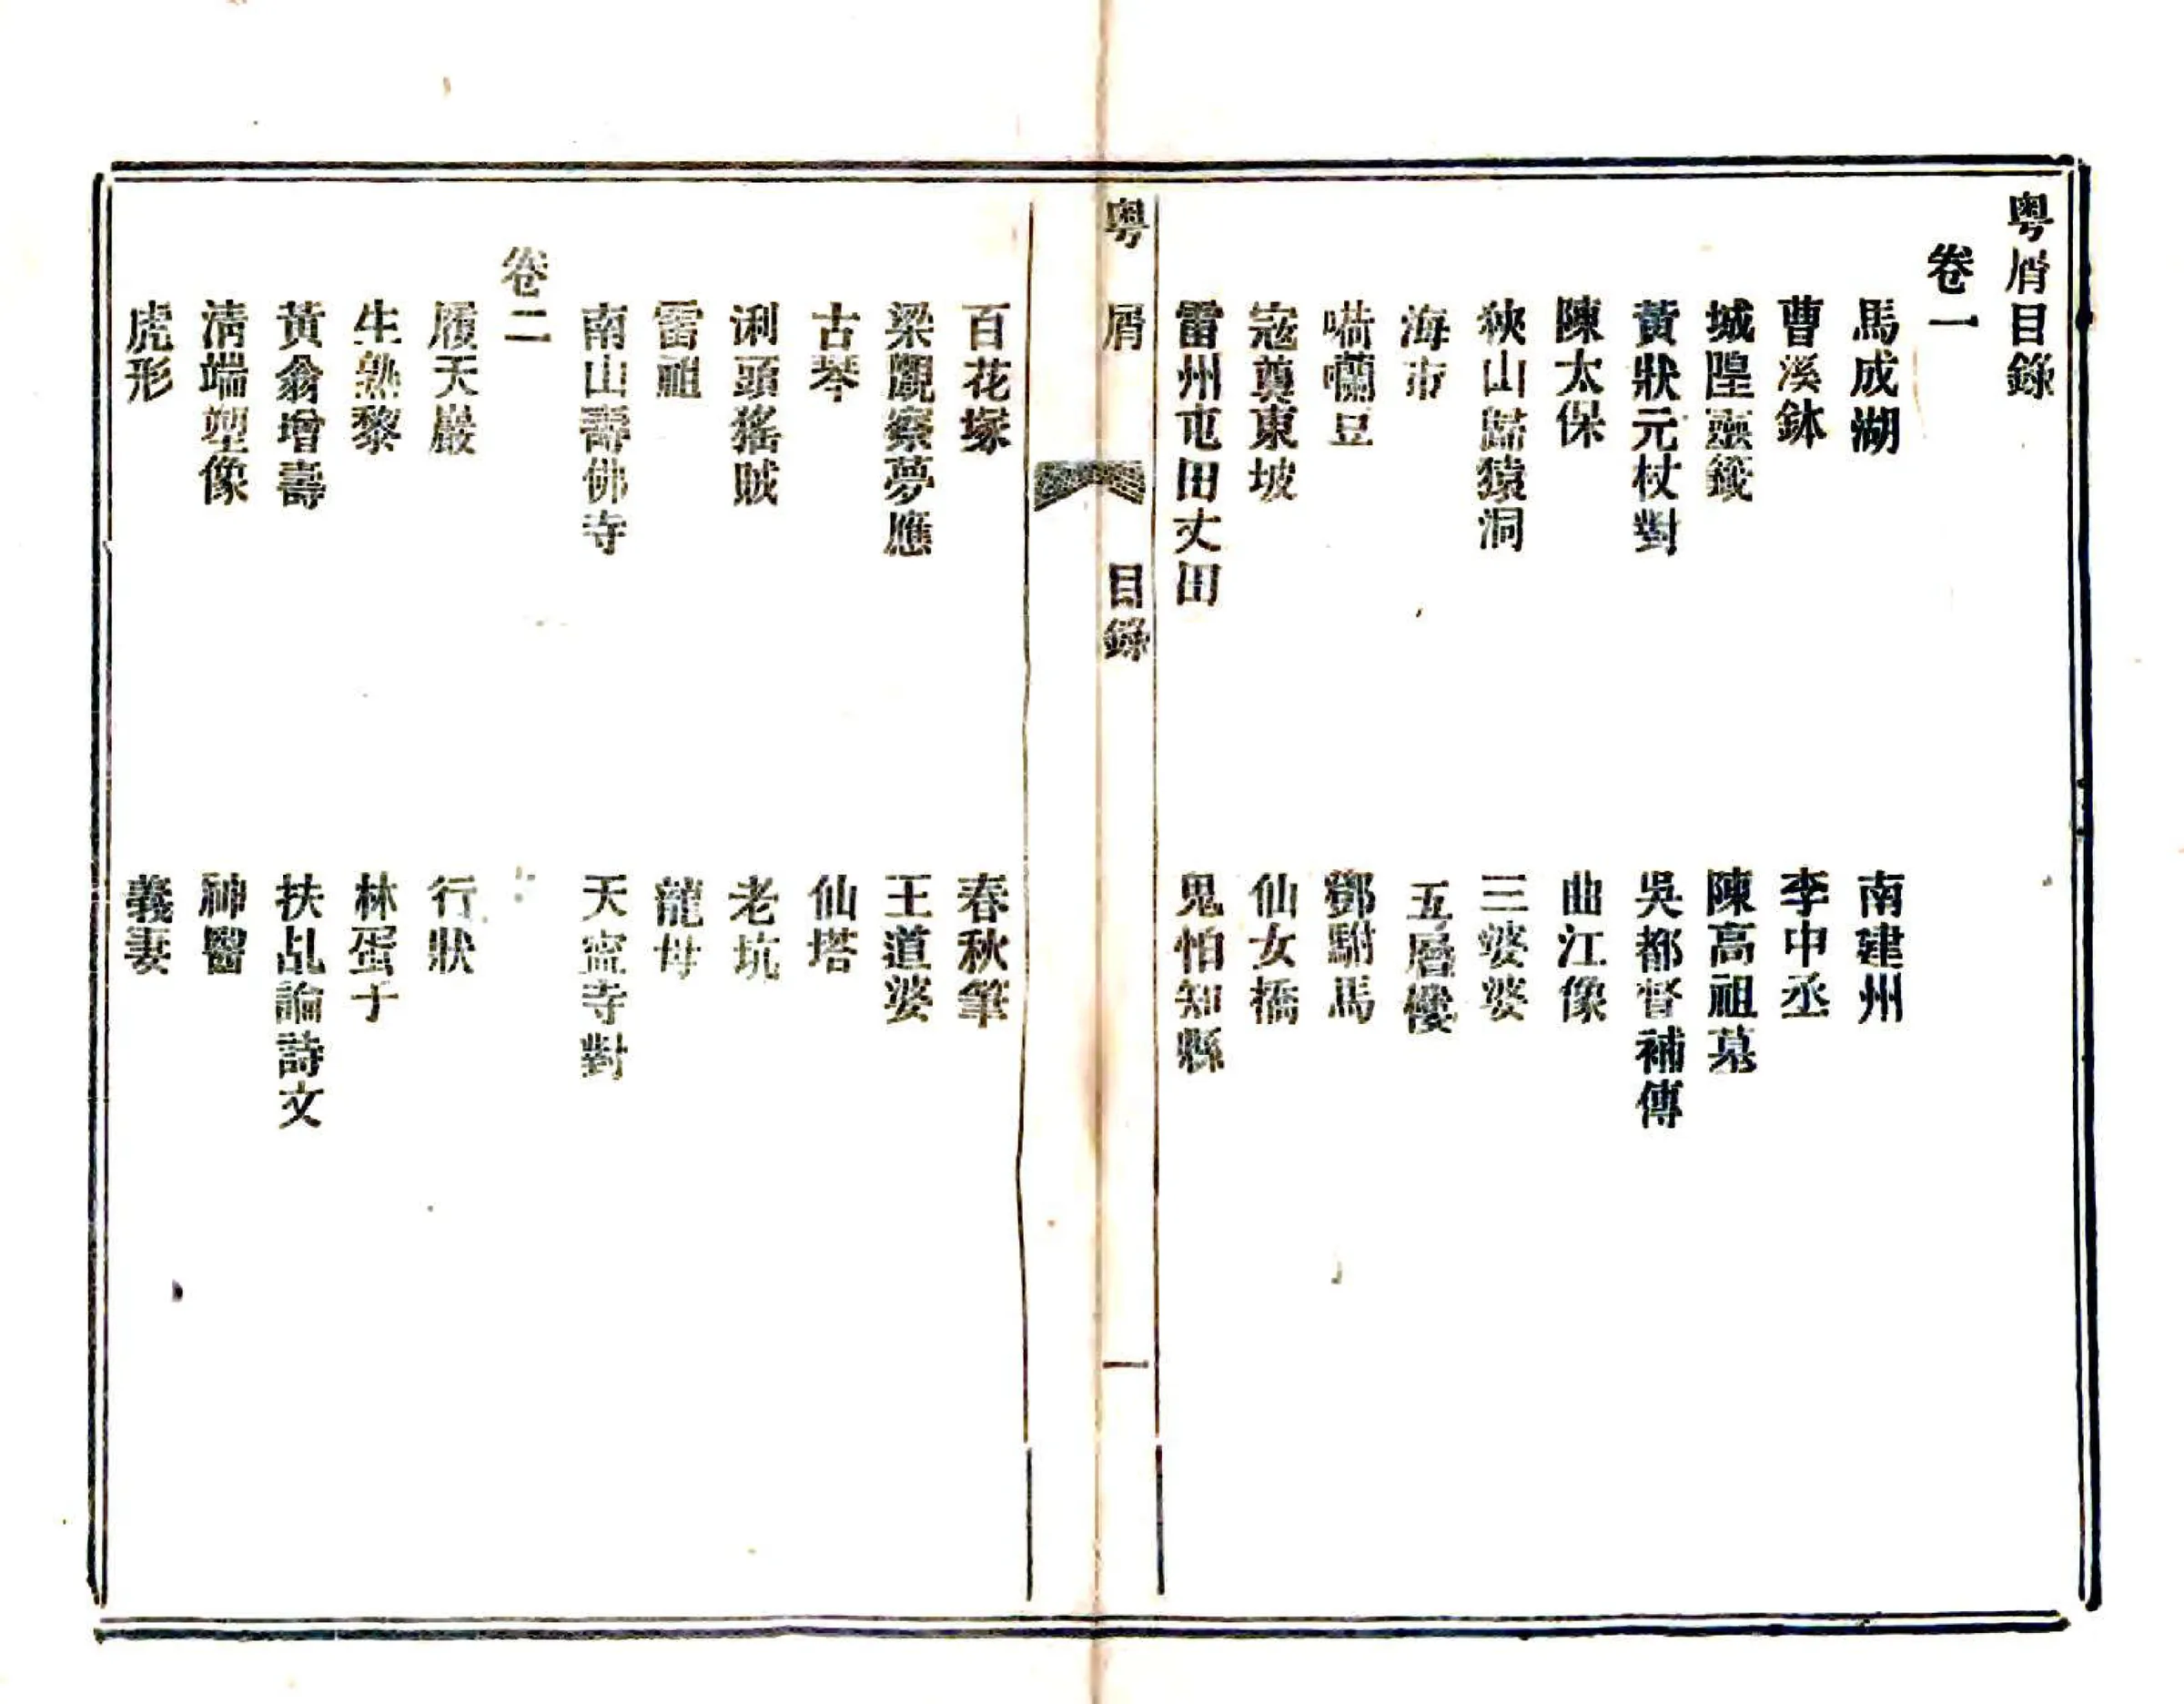 粵屑目錄
卷一
馬成湖
南建州
曹溪鉢
李中丞
城隍靈籤
陳高祖墓
黃狀元杖對
吳都督補傳
陳太保
曲江像
峽山歸猿洞
三婆婆
海市
五層樓
嗬囒豆
鄧駙馬
寇萊東坡
仙女橋
雷州屯田丈田
鬼怕知縣
粵屑
目錄
一
百花塚
春秋筆
梁觀察夢應
王道婆
古琴
仙塔
浰頭猺賊
老坑
雷祖
龍母
南山壽佛寺
天寧寺對
卷二
履天巖
行狀
生熟黎
林蛋子
黃翁增壽
扶乩論詩文
清端塑像
神醫
虎形
義妻